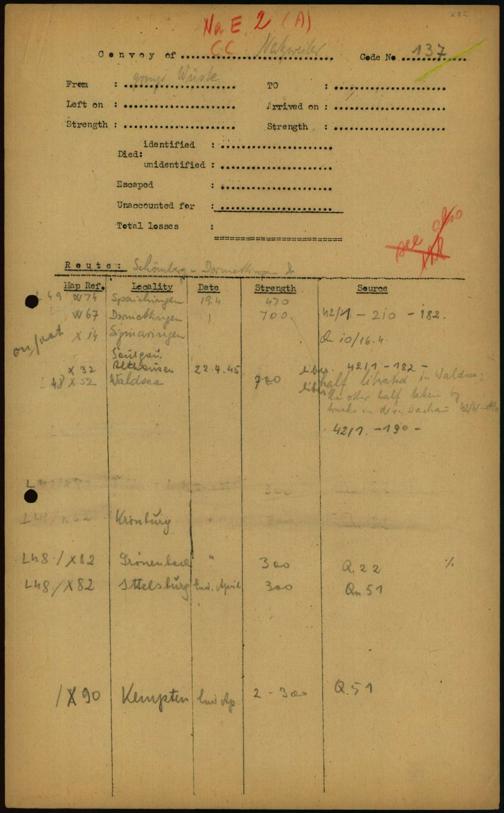 No E. 2 (A)
C.C. Natzweiler
Convoy of Code No 137
group Wüste
From : TO :
Left on : Arrived on :
Strength : Strength :
Died: identified :
unidentified :
Escaped :
Unaccounted for :
Total losses :
see also
Route: Schömberg - Dormettingen
Map Ref. Locality Date Strength Source
L 49 W 74 Spaichingen 19.4 470
W 67 Dormettingen 700 42/1 - 210 - 182.
X 14 Sigmaringen Q 10/16.4
Saulgau
X 32 Althausen 22.4.45 42/1 - 182 -
L 48 X 52 Waldsee half librated in Waldsee;
the other half taken by
trucks in dir. Dachau 42/1
42/1. - 190 -
Kronburg
L48 / X82 Grönenbach " 300 Q. 22 %
L48 / X82 Ittelsburg End. April 300 Qu 51
/ X 90 Kempten End Ap 2 - 300 Q. 51